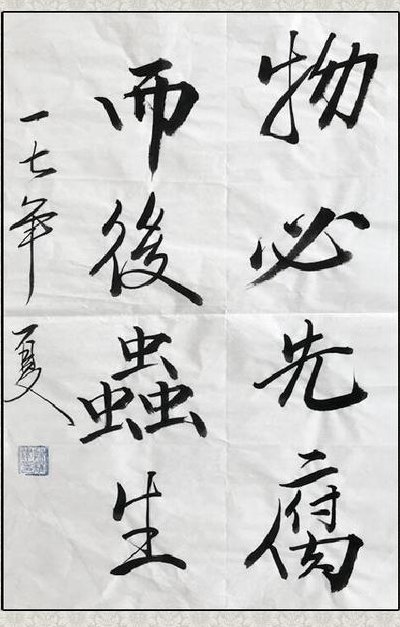 物必先腐
而後蟲生
一七年夏